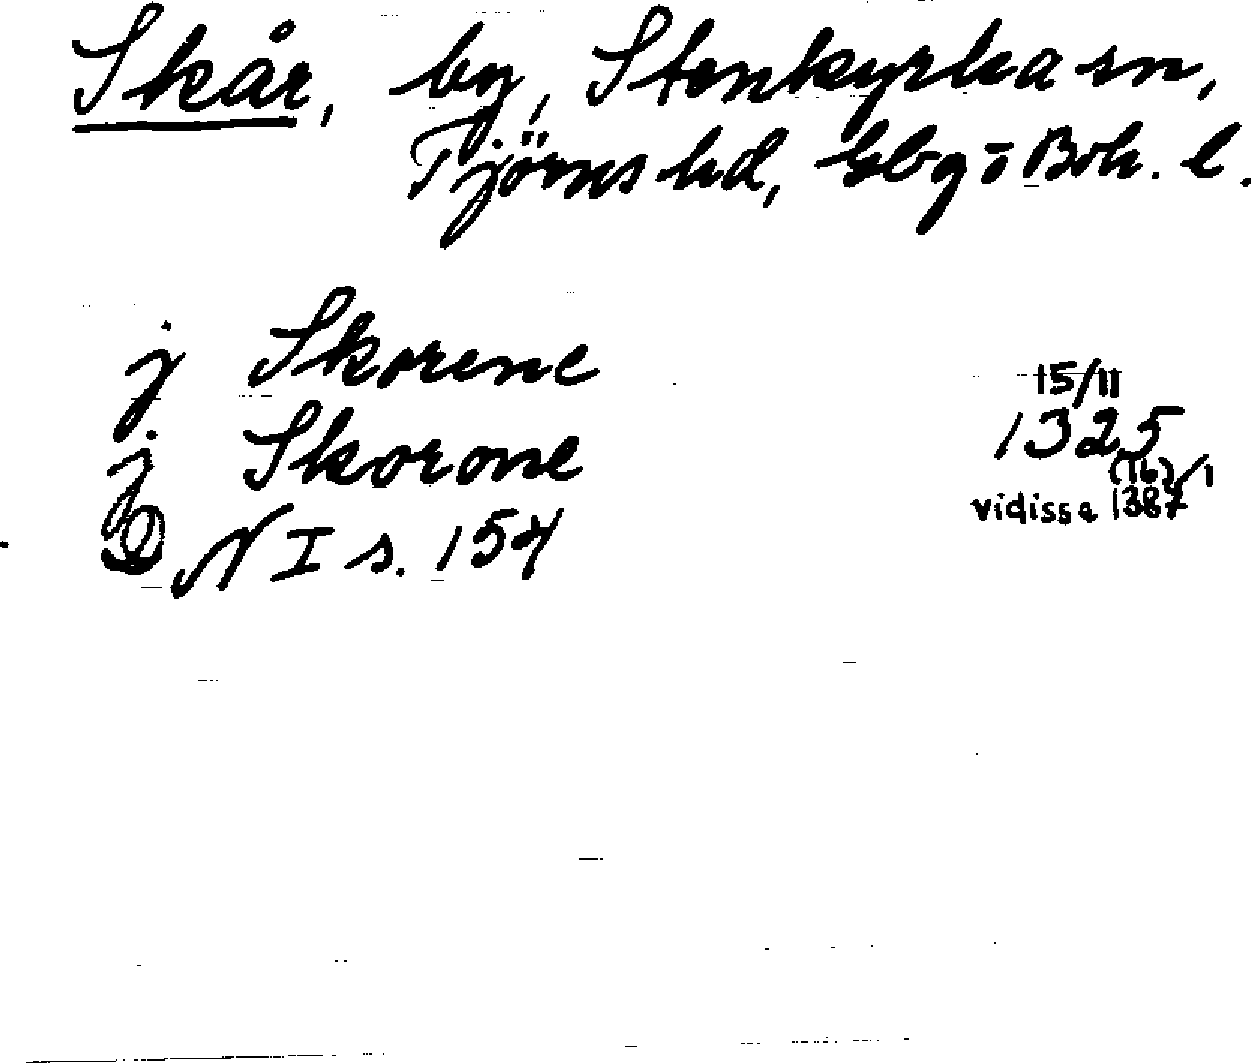 Skår, by, Stenkyrka sn,
Tjörns hd, Gbg o Boh. l.
j Skorene
15/11
j Skorone
1325
(16)/1
vidisse 1387
DN I s. 154